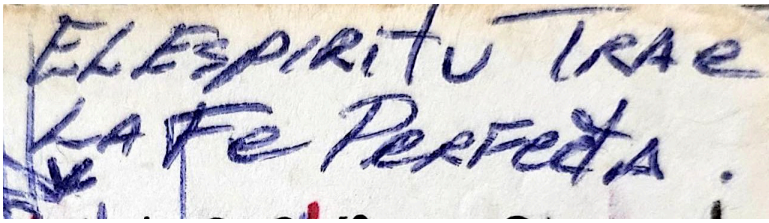 EL ESPIRITU TRAE
LA Fe PeRFectA.